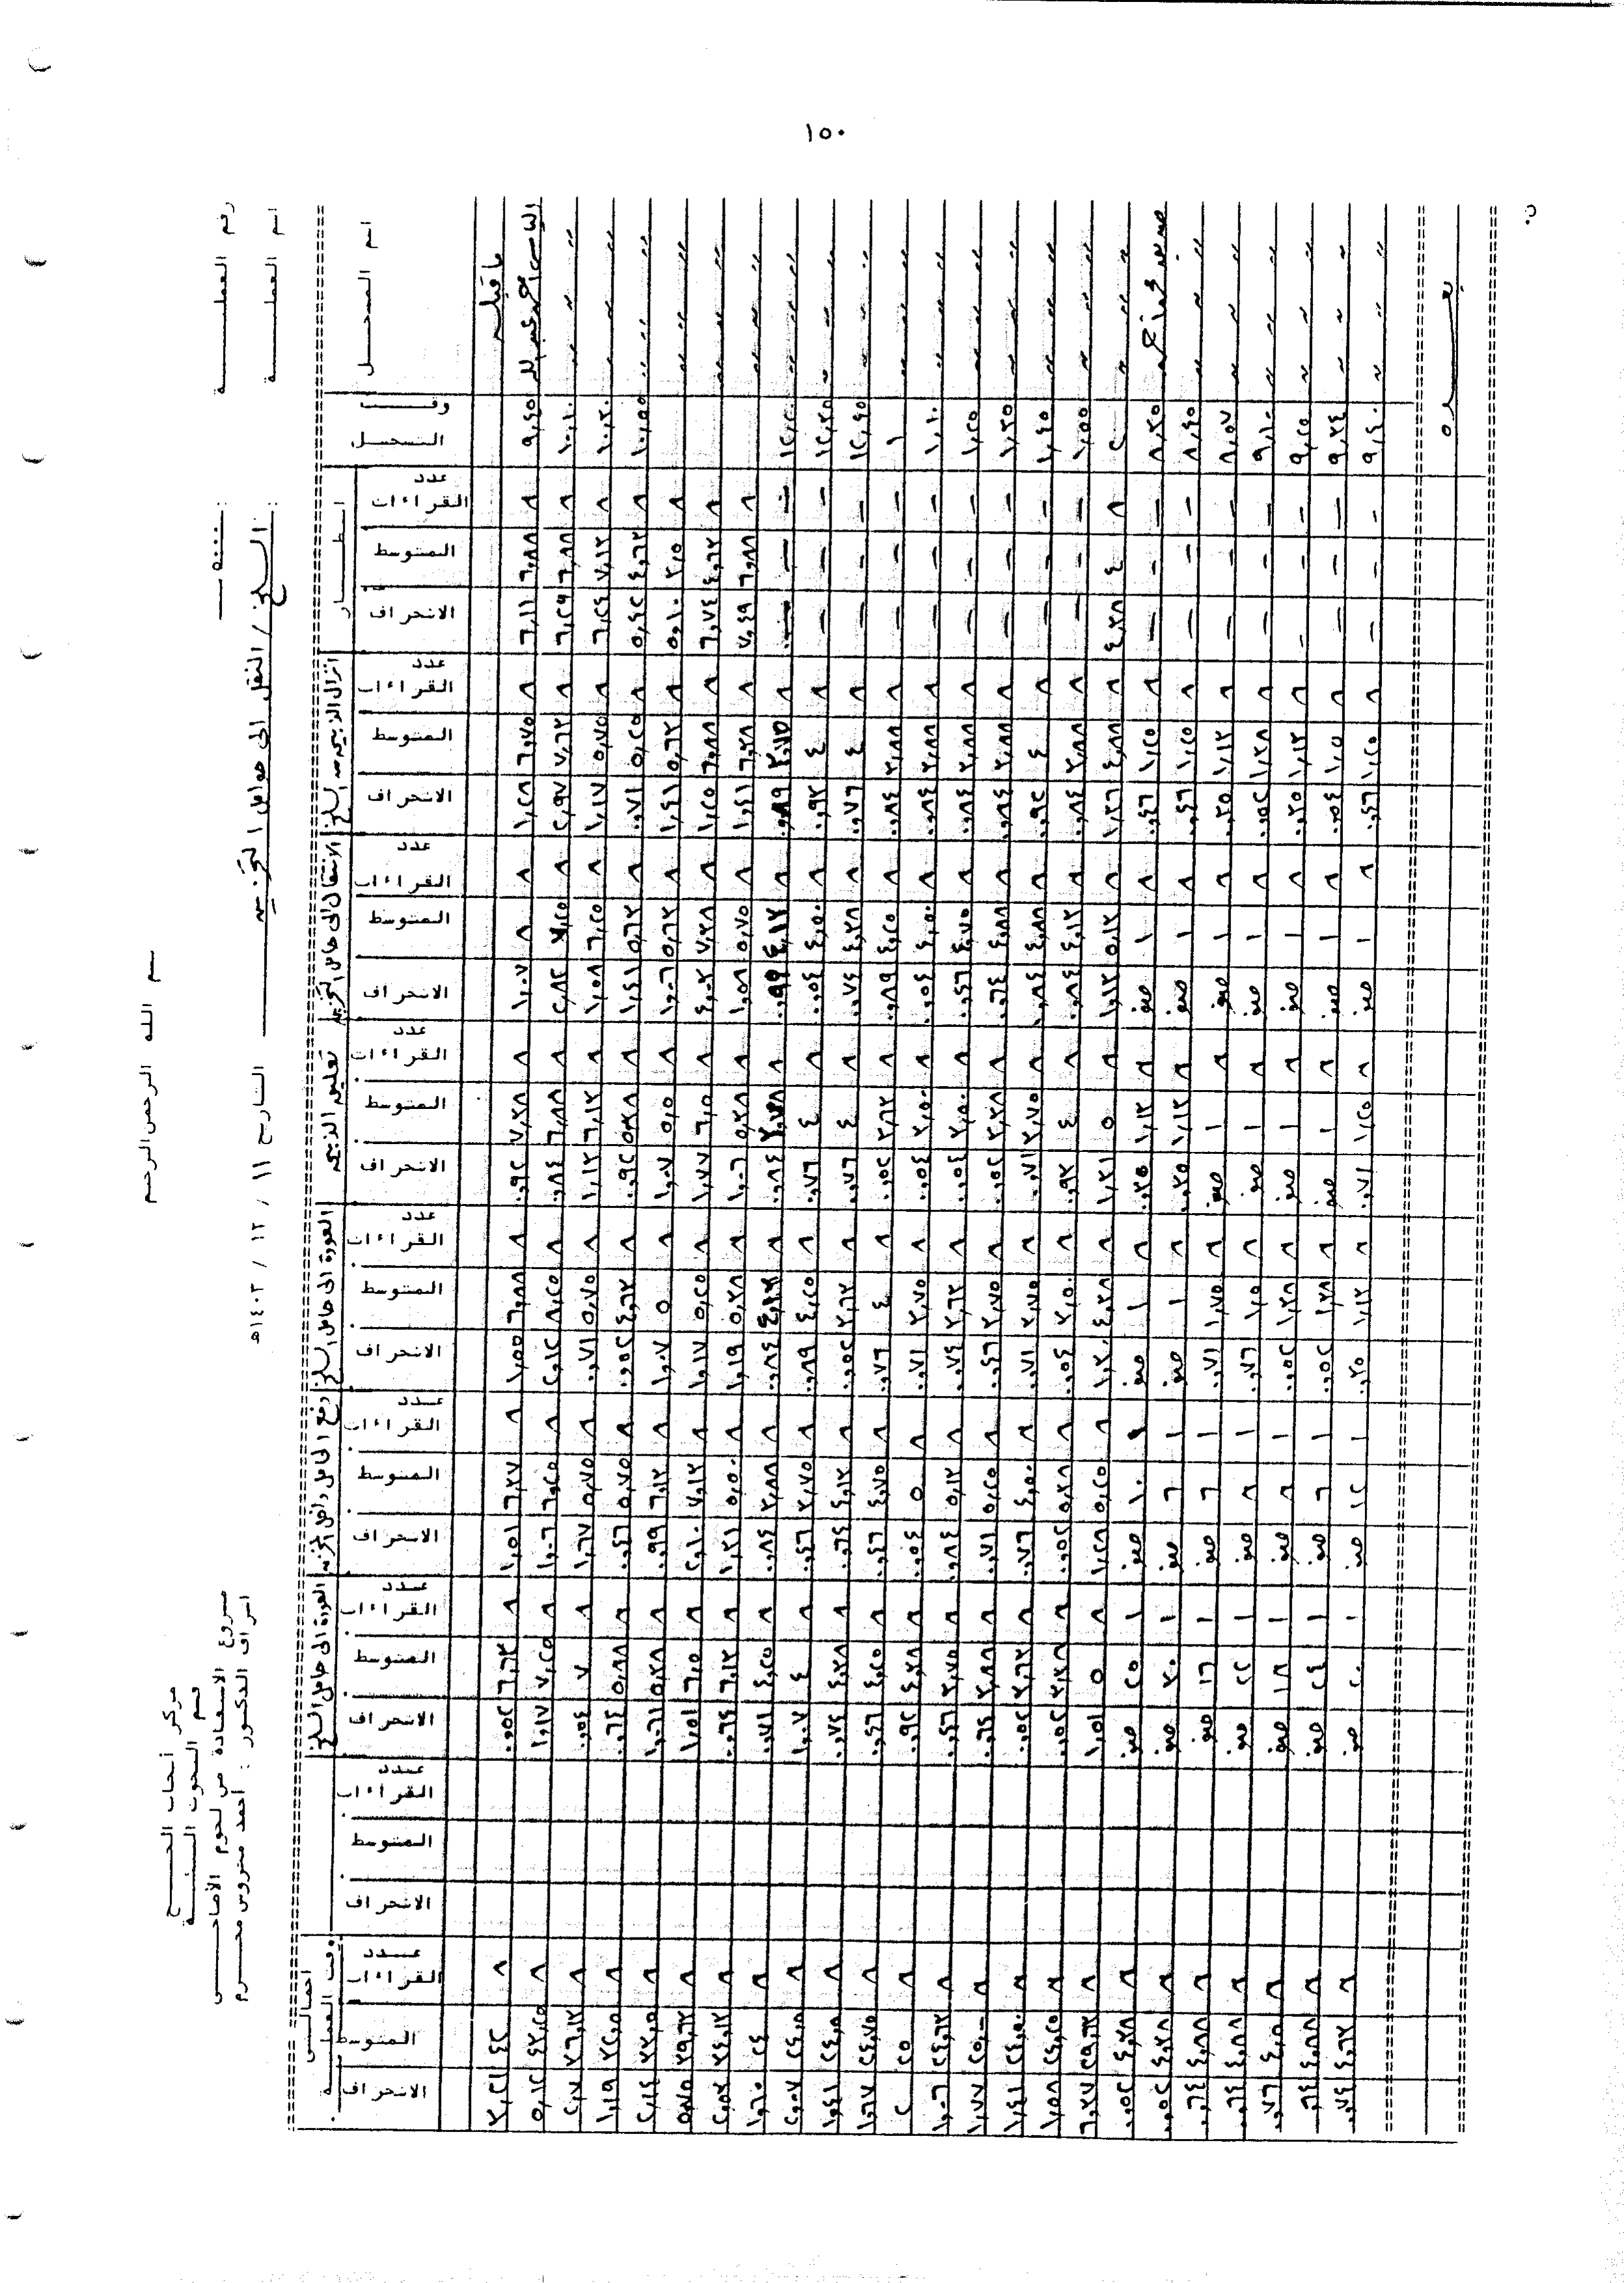 ١٥٠
بسم الله الرحمن الرحيم
مركز أبحاث الحج
قسم البحوث البيئية
مشروع الاستفادة من لحوم الأضاحي
اشراف الدكتور : أحمد محروس محرم
التاريخ ١١ / ١٢ / ١٤٠٣هـ
رقم العملية : ـ ٥٠٠٠
اسم العملية : السلخ / النقل الى حوامل التخزين
اسم المسجل
وقت التسجيل
انتظار
انزال الذبيحه من السلخ
الانتقال الى حامل التخزين
تعليق الذبيحه
العودة الى حامل السلخ
دفع الحامل داخل التخزين
العودة الى حامل السلخ
اجمالى وقت العملية
عدد القراءات المتوسط الانحراف
ما قبله
الياس احمد عبدالله ٩,٤٥ ٨ ٦,٨٨ ٦,١١ ٨ ٦,٧٥ ١,٢٨ ٨ ٨ ١,٠٧ ٨ ٧,٣٨ ٠,٩٢ ٨ ٦,٨٨ ١,٥٥ ٨ ٦,٣٧ ١,٥١ ٨ ٦,٦٣ ٠,٥٢ ٨ ٤٢ ٣,٢١
〃 〃 〃 ١٠,١٠ ٨ ٦,٨٨ ٦,٢٩ ٨ ٧,٦٢ ٢,٩٧ ٨ ٧,٢٥ ٢,٨٢ ٨ ٦,٨٨ ٠,٨٤ ٨ ٨,٢٥ ٢,١٢ ٨ ٦,٢٥ ١,٠٦ ٨ ٧,٢٥ ١,١٧ ٨ ٤٢,٢٥ ٥,١٢
〃 〃 〃 ١٠,٣٠ ٨ ٧,١٢ ٦,٢٤ ٨ ٥,٧٥ ١,١٧ ٨ ٦,٢٥ ١,٥٨ ٨ ٦,١٢ ١,١٢ ٨ ٥,٧٥ ٠,٧١ ٨ ٥,٧٥ ١,٦٧ ٨ ٧ ٠,٥٤ ٨ ٣٦,١٢ ٢,٧
〃 〃 〃 ١٠,٥٥ ٨ ٤,٦٢ ٥,٤٢ ٨ ٥,٢٥ ٠,٧١ ٨ ٥,٦٢ ١,٤١ ٨ ٥,٣٨ ٠,٩٢ ٨ ٤,٦٢ ٠,٥٢ ٨ ٥,٧٥ ٠,٤٦ ٨ ٥,٩٨ ٠,٦٤ ٨ ٣٢,٥ ١,١٩
〃 〃 ٨ ٣,٥ ٥,١٠ ٨ ٥,٦٢ ١,٤١ ٨ ٥,٦٢ ١,٠٦ ٨ ٥,٥ ١,٠٧ ٨ ٥ ١,٠٧ ٨ ٦,١٢ ٠,٩٩ ٨ ٥,٣٨ ١,٠٦ ٨ ٣٣,٥ ٢,١٤
〃 〃 ٨ ٤,٦٢ ٦,٧٤ ٨ ٦,٨٨ ١,٢٥ ٨ ٧,٣٨ ٤,٠٢ ٨ ٦,٥ ١,٧٧ ٨ ٥,٢٥ ١,١٧ ٨ ٧,١٢ ٢,١٠ ٨ ٦,٥ ١,٥١ ٨ ٣٩,٦٢ ٥,٧٥
〃 〃 ٨ ٦,٨٨ ٧,٤٩ ٨ ٦,٣٨ ١,٤١ ٨ ٥,٧٥ ١,٥٨ ٨ ٥,٣٨ ١,٠٦ ٨ ٥,٣٨ ١,١٩ ٨ ٥,٥٠ ١,٣١ ٨ ٦,١٢ ٠,٦٤ ٨ ٣٤,١٢ ٢,٥٢
〃 〃 ١٢,٢٠ – – – ٨ ٣,٧٥ ٠,٨٩ ٨ ٤,١٢ ٠,٩٩ ٨ ٣,٣٨ ٠,٨٤ ٨ ٤,١٢ ٠,٨٤ ٨ ٣,٨٨ ٠,٨٤ ٨ ٤,٢٥ ٠,٧١ ٨ ٢٤ ١,٦٠
〃 〃 ١٢,٣٥ – – – ٨ ٤ ٠,٩٢ ٨ ٤,٥٠ ٠,٥٤ ٨ ٤ ٠,٧٦ ٨ ٤,٢٥ ٠,٨٩ ٨ ٣,٧٥ ٠,٤٦ ٨ ٤ ١,٠٧ ٨ ٢٤,٥ ٢,٠٧
〃 〃 ١٢,٤٥ – – – ٨ ٤ ٠,٧٦ ٨ ٤,٣٨ ٠,٧٤ ٨ ٤ ٠,٧٦ ٨ ٣,٦٢ ٠,٥٢ ٨ ٤,١٢ ٠,٦٤ ٨ ٤,٣٨ ٠,٧٤ ٨ ٢٤,٥ ١,٤١
〃 〃 ١ – – – ٨ ٣,٨٨ ٠,٨٤ ٨ ٤,٢٥ ٠,٨٩ ٨ ٣,٦٢ ٠,٥٢ ٨ ٤ ٠,٧٦ ٨ ٤,٧٥ ٠,٤٦ ٨ ٤,٢٥ ٠,٤٦ ٨ ٢٤,٧٥ ١,٦٧
〃 〃 ١,١٠ – – – ٨ ٣,٨٨ ٠,٨٤ ٨ ٤,٥٠ ٠,٥٤ ٨ ٣,٥٠ ٠,٥٤ ٨ ٣,٧٥ ٠,٧١ ٨ ٥ ٠,٥٤ ٨ ٤,٣٨ ٠,٩٢ ٨ ٢٥ ٢
〃 〃 ١,٢٥ – – – ٨ ٣,٨٨ ٠,٨٤ ٨ ٤,٧٥ ٠,٤٦ ٨ ٣,٥٠ ٠,٥٤ ٨ ٣,٦٢ ٠,٧٤ ٨ ٥,١٢ ٠,٨٤ ٨ ٣,٧٥ ٠,٤٦ ٨ ٢٤,٦٢ ١,٠٦
〃 〃 ١,٣٥ – – – ٨ ٣,٨٨ ٠,٨٤ ٨ ٤,٨٨ ٠,٦٤ ٨ ٣,٣٨ ٠,٥٢ ٨ ٣,٧٥ ٠,٤٦ ٨ ٥,٢٥ ٠,٧١ ٨ ٣,٨٨ ٠,٦٤ ٨ ٢٥,٠٠ ١,٧٧
〃 〃 ١,٤٥ – – – ٨ ٤ ٠,٩٢ ٨ ٤,٨٨ ٠,٨٤ ٨ ٣,٧٥ ٠,٧١ ٨ ٣,٧٥ ٠,٧١ ٨ ٤,٥٠ ٠,٧٦ ٨ ٣,٦٢ ٠,٥٢ ٨ ٢٤,٥٠ ١,٤١
〃 〃 ١,٥٥ – – – ٨ ٣,٨٨ ٠,٨٤ ٨ ٤,١٢ ٠,٨٤ ٨ ٤ ٠,٩٢ ٨ ٣,٥٠ ٠,٥٤ ٨ ٥,٣٨ ٠,٥٢ ٨ ٣,٣٨ ٠,٥٢ ٨ ٢٤,٢٥ ١,٥٨
〃 〃 ٢ ٨ ٤ ٤,٣٨ ٨ ٤,٨٨ ١,٣٦ ٨ ٥,١٢ ١,١٢ ٨ ٥ ١,٣١ ٨ ٤,٣٨ ١,٣٠ ٨ ٥,٢٥ ١,٢٨ ٨ ٥ ١,٥١ ٨ ٢٩,٦٢ ٦,٣٧
٨,٣٥ – – – ٨ ١,٢٥ ٠,٤٦ ٨ ١ صفر ٨ ١,١٢ ٠,٣٥ ٨ ١ صفر ١ ١٠ صفر ١ ٢٥ صفر ٨ ٤,٣٨ ٠,٥٢
〃 〃 ٨,٤٥ – – – ٨ ١,٢٥ ٠,٤٦ ٨ ١ صفر ٨ ١,١٢ ٠,٣٥ ٨ ١ صفر ١ ٦ صفر ١ ٣٠ صفر ٨ ٤,٣٨ ٠,٥٢
〃 〃 ٨,٥٧ – – – ٨ ١,١٢ ٠,٣٥ ٨ ١ صفر ٨ ١ صفر ٨ ١,٧٥ ٠,٧١ ١ ٦ صفر ١ ١٦ صفر ٨ ٤,٨٨ ٠,٦٤
〃 〃 ٩,١٠ – – – ٨ ١,٣٨ ٠,٥٢ ٨ ١ صفر ٨ ١ صفر ٨ ١,٥ ٠,٧٦ ١ ٨ صفر ١ ٢٢ صفر ٨ ٤,٨٨ ٠,٦٤
〃 〃 ٩,٢٥ – – – ٨ ١,١٢ ٠,٣٥ ٨ ١ صفر ٨ ١ صفر ٨ ١,٣٨ ٠,٥٢ ١ ٨ صفر ١ ١٨ صفر ٨ ٤,٥ ٠,٧٦
〃 〃 ٩,٣٤ – – – ٨ ١,٥ ٠,٥٤ ٨ ١ صفر ٨ ١ صفر ٨ ١,٣٨ ٠,٥٢ ١ ٦ صفر ١ ٢٤ صفر ٨ ٤,٨٨ ٠,٦٤
〃 〃 ٩,٤٠ – – – ٨ ١,٢٥ ٠,٤٦ ٨ ١ صفر ٨ ١,٢٥ ٠,٧١ ٨ ١,١٢ ٠,٣٥ ١ ١٢ صفر ١ ٢٠ صفر ٨ ٤,٦٢ ٠,٧٤
بعده